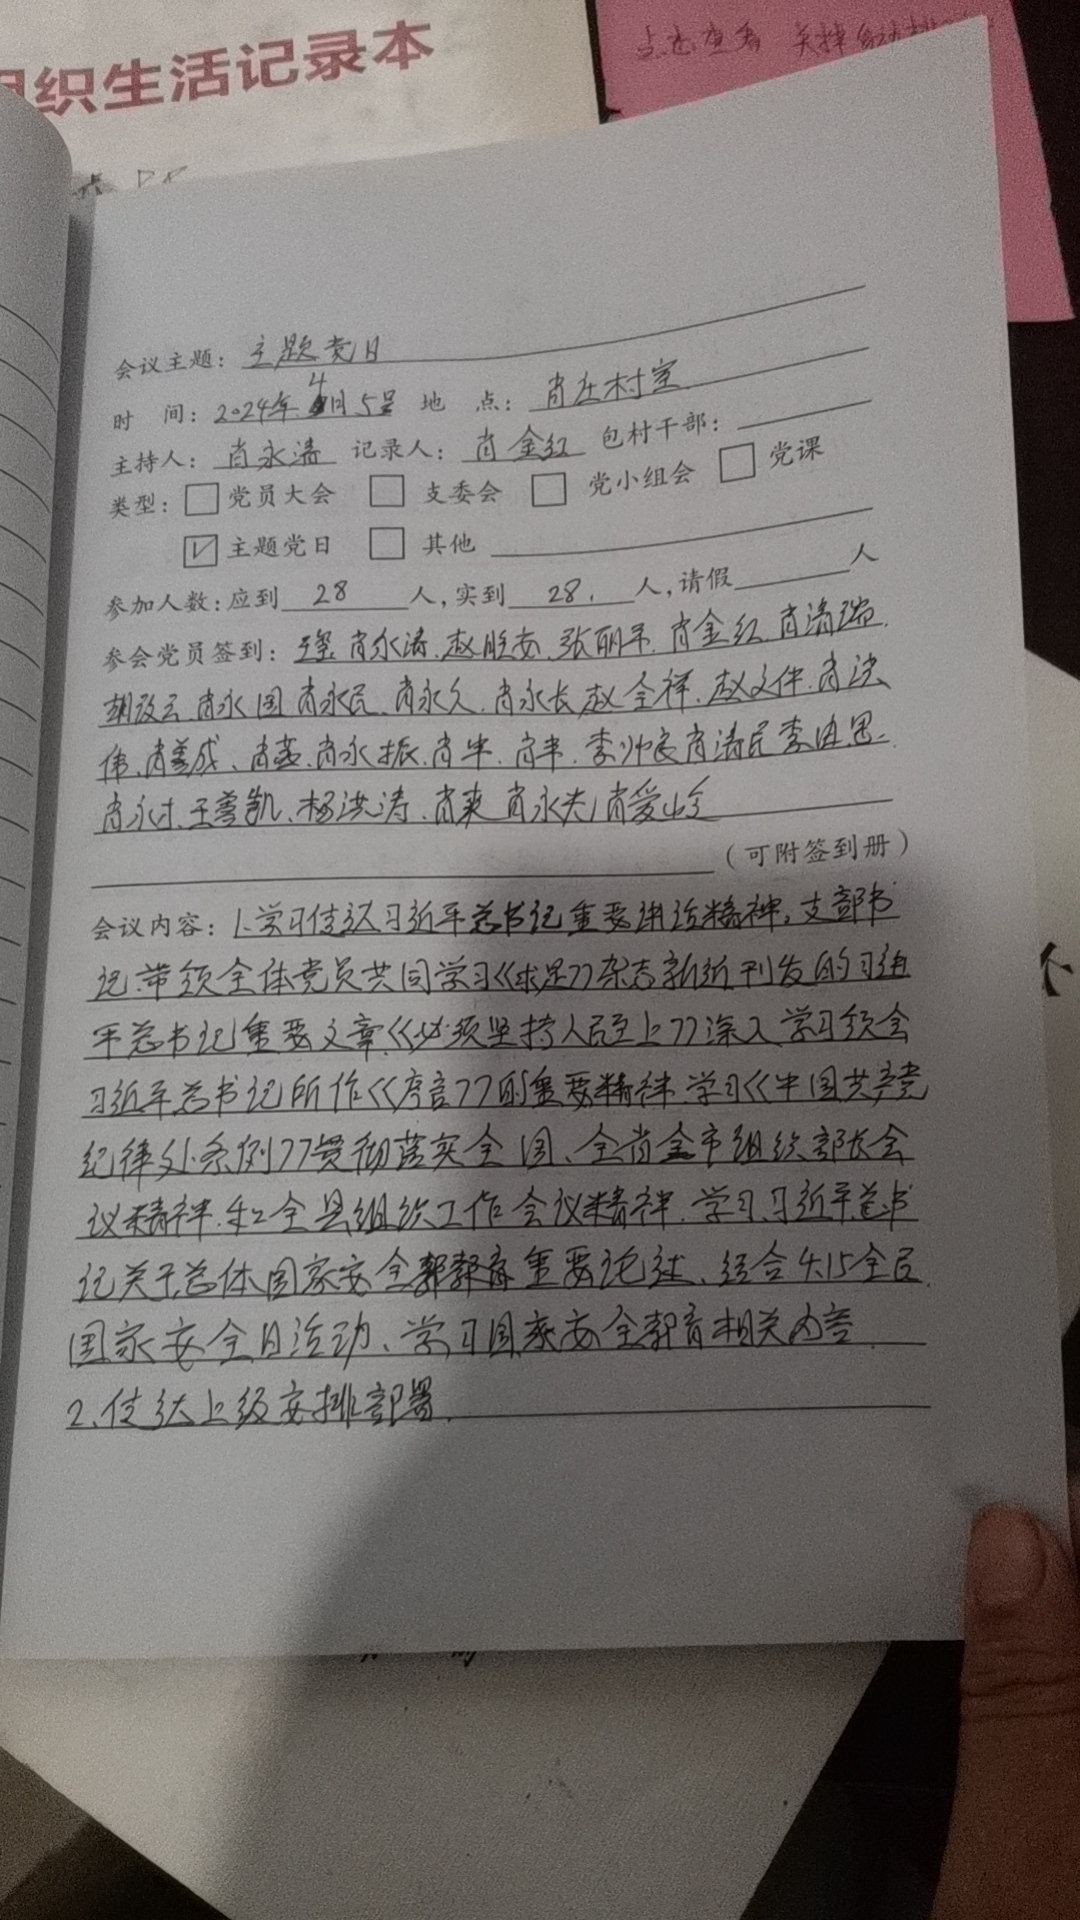 组织生活记录本
会议主题：主题党日
时 间：2024年4月5号 地 点：肖庄村室
主持人：肖永涛 记录人：肖金红 包村干部：
类型：□党员大会 □支委会 □党小组会 □党课
☑主题党日 □其他
参加人数：应到 28 人，实到 28. 人，请假 人
参会党员签到： 肖永涛、赵胜安、张丽平、肖金红、肖清瑞、
肖永国 肖永民、肖永久、肖永长、赵全祥、赵文件、肖洪
伟、肖善成、肖燕、肖永振、肖华、肖韦、李帅良 肖涛民 李进思、
肖永才、王善凯、杨洪涛、肖爽 肖永夫、肖爱岭
（可附签到册）
会议内容：1.学习传达习近平总书记重要讲话精神，支部书
记带领全体党员共同学习《求是》杂志新近刊发的习近
平总书记重要文章《必须坚持人民至上》深入学习领会
习近平总书记所作《序言》的重要精神.学习《中国共产党
纪律处条例》贯彻落实全国、全省全市组织部长会
议精神.和全县组织工作会议精神.学习习近平总书
记关于总体国家安全教育重要论述、结合4.15全民
国家安全日活动、学习国家安全教育相关内容.
2、传达上级安排部署.